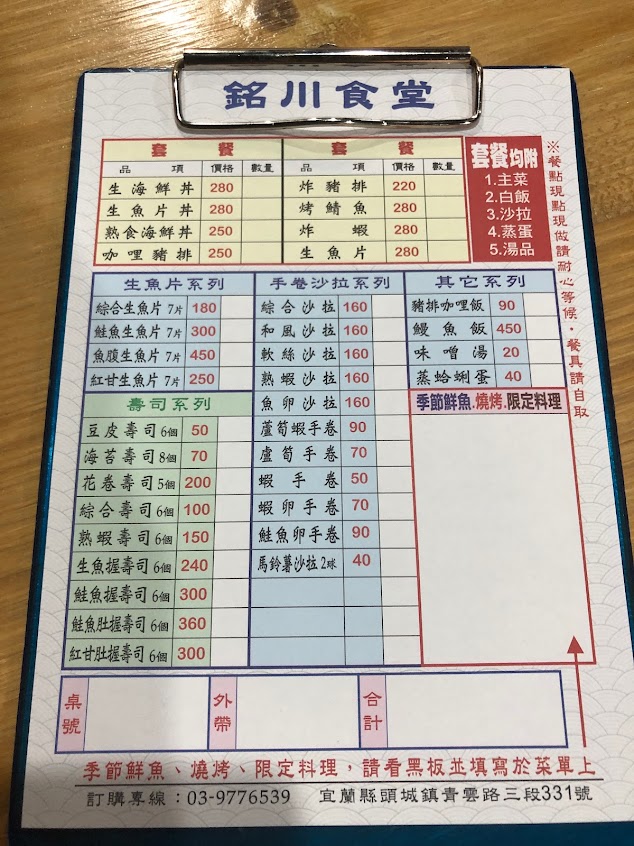 銘川食堂
套餐
品項 價格 數量
生海鮮丼 280
生魚片丼 280
熟食海鮮丼 250
咖哩豬排 250
套餐
品項 價格 數量
炸豬排 220
烤鯖魚 280
炸蝦 280
生魚片 280
套餐均附
1.主菜
2.白飯
3.沙拉
4.蒸蛋
5.湯品
※餐點現點現做請耐心等候·餐具請自取
生魚片系列
綜合生魚片7片 180
鮭魚生魚片7片 300
魚腹生魚片7片 450
紅甘生魚片7片 250
壽司系列
豆皮壽司6個 50
海苔壽司8個 70
花卷壽司5個 200
綜合壽司6個 100
熟蝦壽司6個 150
生魚握壽司6個 240
鮭魚握壽司6個 300
鮭魚肚握壽司6個 360
紅甘肚握壽司6個 300
手卷沙拉系列
綜合沙拉 160
和風沙拉 160
軟絲沙拉 160
熟蝦沙拉 160
魚卵沙拉 160
蘆筍蝦手卷 90
盧筍手卷 70
蝦手卷 50
蝦卵手卷 70
鮭魚卵手卷 90
馬鈴薯沙拉2球 40
其它系列
豬排咖哩飯 90
鰻魚飯 450
味噌湯 20
蒸蛤蜊蛋 40
季節鮮魚.燒烤.限定料理
桌號
外帶
合計
季節鮮魚、燒烤、限定料理，請看黑板並填寫於菜單上
訂購專線：03-9776539 宜蘭縣頭城鎮青雲路三段331號